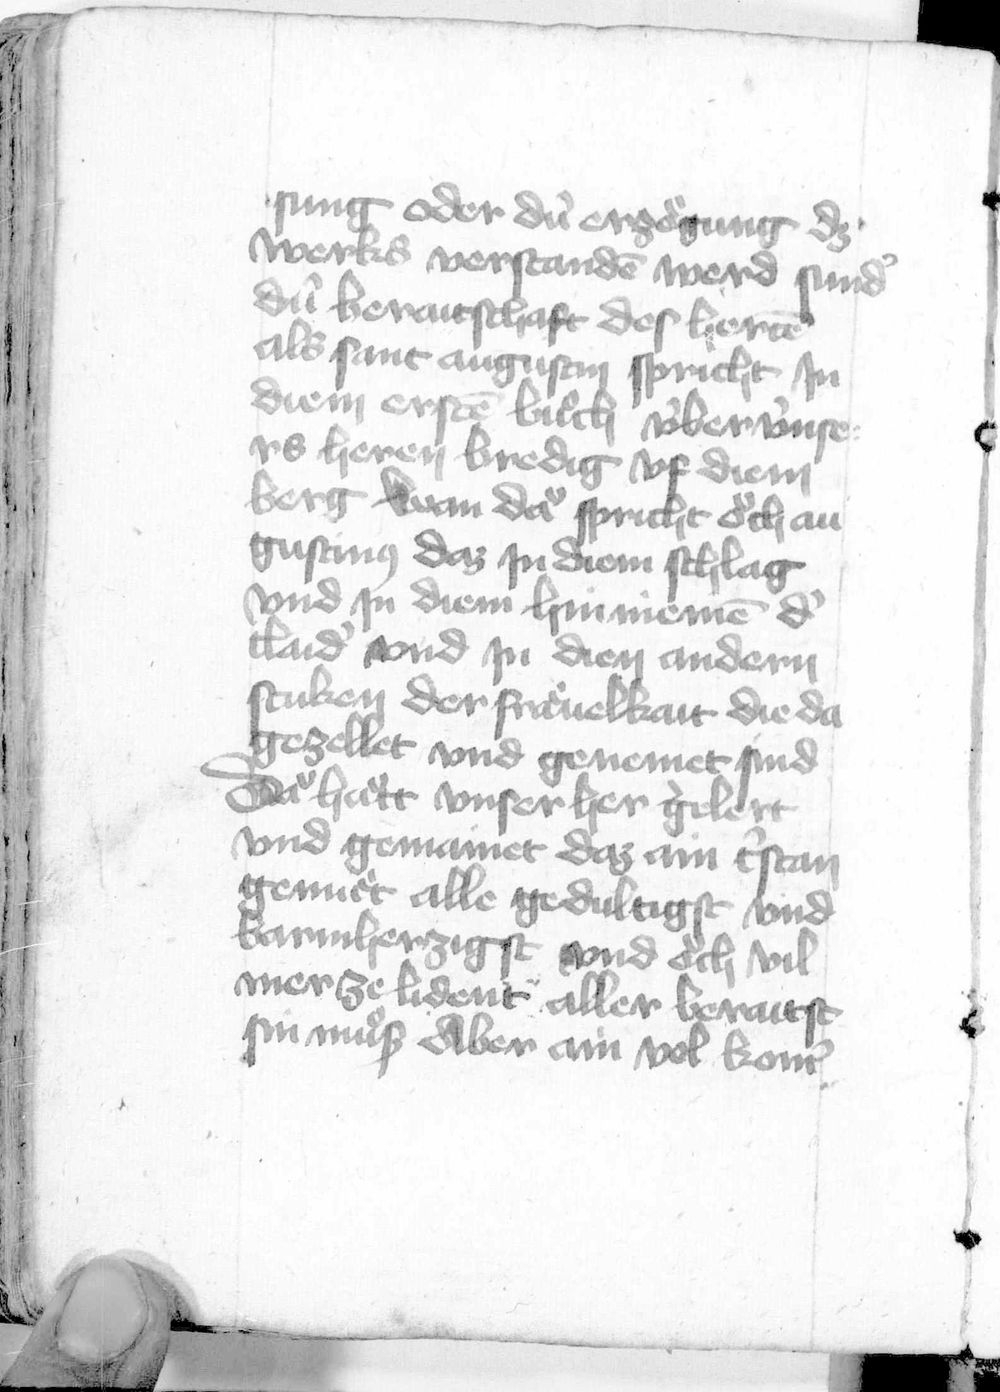 sung oder dú erzoͤgung dz
werks verstandē werd sund'
dú beraitschaft des hertzē
als sant augustin spricht In
diem erstē buͦch v́ber vnse-
rs heren bredig vf diem
berg wan daͮ spricht oͮch au
gustinꝰ daz In diem schlag
vnd In diem hinniemē d'
claid' vnd In dien andern
stuken der fraͤuelkait die da
gezellet vnd genemet sind
Daͮ haͮtt vnser her gelert
vnd gemainet daz ain c'stan
gemuͤt alle gedultigst vnd
barmherzigst vnd oͮch vil
mer ze lident aller beraitst
sin muͦß Aber ain vol kom'